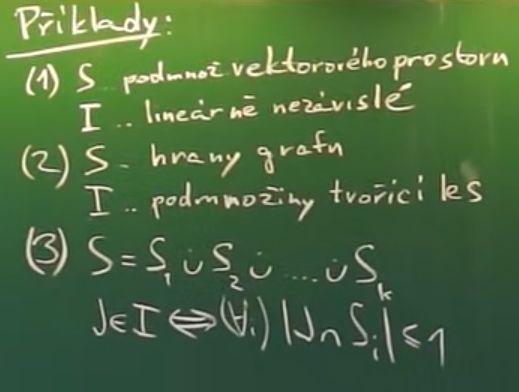 Příklady:
(1) S .. podmnož vektorového prostoru
I .. lineárně nezávislé
(2) S .. hrany grafu
I .. podmnožiny tvořící les
(3) S = S₁ ∪̇ S₂ ∪̇ .... ∪̇ Sₖ
J∈I ⇔ (∀i) |J∩Sᵢ| ≤ 1